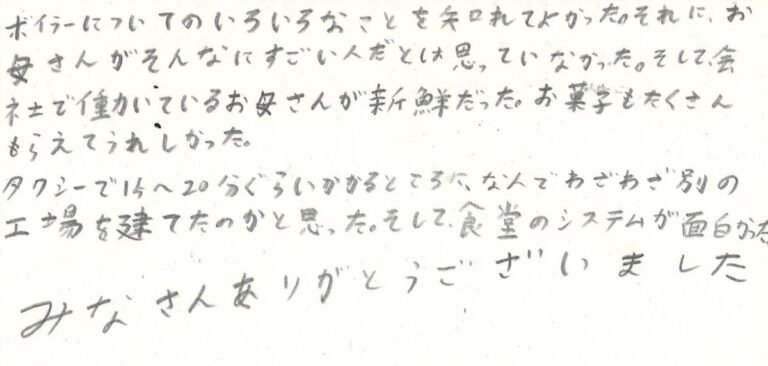 ボイラーについてのいろいろなことを知れてよかった。それに、お
母さんがそんなにすごい人だとは思っていなかった。そして、会
社で働いているお母さんが新鮮だった。お菓子もたくさん
もらえてうれしかった。
タクシーで15〜20分ぐらいかかるところに、なんでわざわざ別の
工場を建てたのかと思った。そして、食堂のシステムが面白かった
みなさんありがとうございました